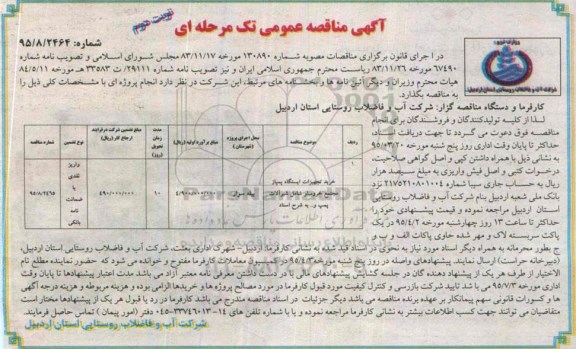 آگهی مناقصه عمومی تک مرحله ای
نوبت دوم
شماره: ۹۵/۸/۲۴۶۴
در اجرای قانون برگزاری مناقصات مصوبه شماره ۱۳۰۸۹۰ مورخه ۸۳/۱۱/۱۷ مجلس شورای اسلامی و تصویب نامه شماره
۶۷۴۹۰ مورخه ۸۳/۱۱/۲۶ ریاست محترم جمهوری اسلامی ایران و نیز تصویب نامه شماره ۲۹۱۱۱/ت ۳۳۵۸۳ هـ مورخه ۸۴/۵/۱۱
هیات محترم وزیران و دیگر آئین نامه ها و بخشنامه های مرتبط، این شرکت در نظر دارد انجام پروژه ای با مشخصات کلی ذیل را
به مناقصه بگذارد.
کارفرما و دستگاه مناقصه گزار: شرکت آب و فاضلاب روستایی استان اردبیل
لذا از کلیه تولیدکنندگان و فروشندگان برای انجام
مناقصه فوق دعوت می گردد تا جهت دریافت اسناد
حداکثر تا پایان وقت اداری روز پنج شنبه مورخه ۹۵/۰۳/۲۰
به نشانی ذیل با همراه داشتن کپی و اصل گواهی صلاحیت،
درخواست کتبی و اصل فیش واریزی به مبلغ سیصد هزار
ریال به حساب جاری سیبا شماره ۲۱۷۵۲۱۰۸۰۱۰۰۴ نزد
بانک ملی شعبه اردبیل بنام شرکت آب و فاضلاب روستایی
استان اردبیل مراجعه نموده و قیمت پیشنهادی خود را
حداکثر تا ساعت ۱۳ روز چهارشنبه مورخه ۹۵/۴/۲ در یک
پاکت سربسته لاک و مهر شده حاوی پاکات الف و ب و
ردیف
موضوع مناقصه
محل اجرای پروژه (شهرستان)
مبلغ برآورد اولیه (ریال)
مدت زمان (روز)
مبلغ تضمین شرکت در فرایند ارجاع کار (ریال)
نوع تضمین
شماره مناقصه
۱
خرید تجهیزات ایستگاه پمپاژ
مجتمع خروسلو شامل شیرآلات
پمپ و.. به شرح اسناد
بیله سوار
۱۰
۴۹۰/۰۰۰/۰۰۰
واریز نقدی یا ضمانت نامه بانکی
۹۵/۸/۲۴۶۵
ج بطور محرمانه به همراه دیگر اسناد مورد نیاز به نحوی در اسناد قید شده به نشانی کارفرما: اردبیل- شهرک اداری بعثت- شرکت آب و فاضلاب روستایی استان اردبیل،
(دبیرخانه حراست) ارسال نمایند. پیشنهادهای واصله در روز پنج شنبه مورخه ۹۵/۴/۳ در کمیسیون معاملات کارفرما مفتوح و خوانده می شود که حضور نماینده مطلع تام
الاختیار از طرف هر یک از پیشنهاد دهنده گان در جلسه گشایش پیشنهادهای مالی با در دست داشتن معرفی نامه معتبر آزاد می باشد مدت اعتبار پیشنهادها تا پایان وقت
اداری مورخه ۹۵/۷/۳ می باشد تایید شرکت بازرسی و کنترل کیفیت مورد قبول کارفرما در مورد مصالح پروژه ها و خریدها الزامی بوده و هزینه مربوطه و هزینه درجه آگهی
ها و کسورات قانونی سهم پیمانکار بر عهده برنده مناقصه می باشد دیگر جزئیات در اسناد مناقصه مندرج می باشد کارفرما در رد یا قبول هر یک از پیشنهادها مختار است
متقاضیان می توانند جهت کسب اطلاعات بیشتر به نشانی کارفرما مراجعه نموده و یا با شماره تلفن های ۱۴-۳۳۷۴۶۰۱۳-۰۴۵ دفتر (امور پیمان) تماس حاصل فرمایند.
شرکت آب و فاضلاب روستایی استان اردبیل